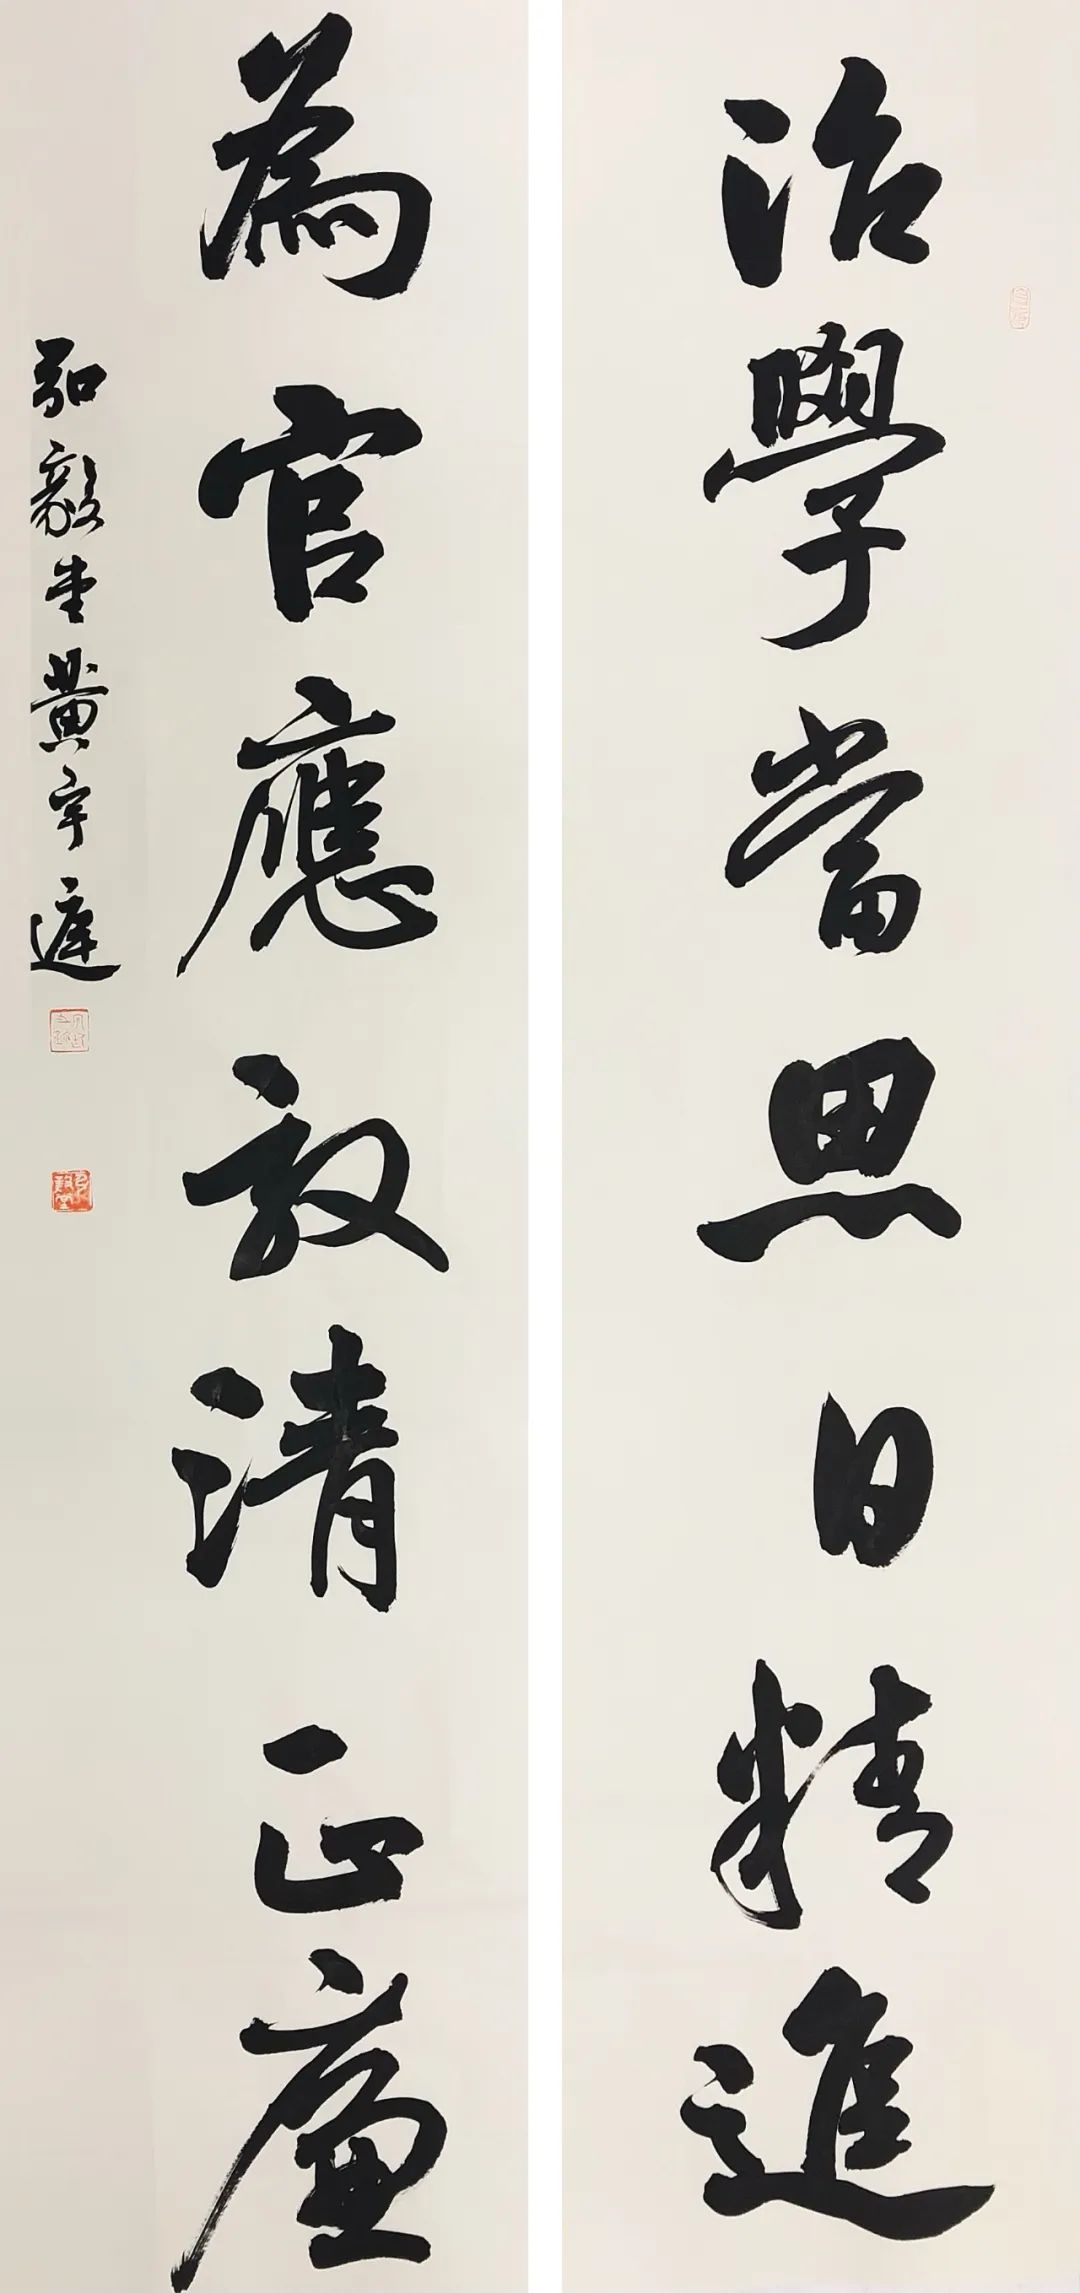 治學當思日精進
為官應效清正廉
弘毅堂黄宇